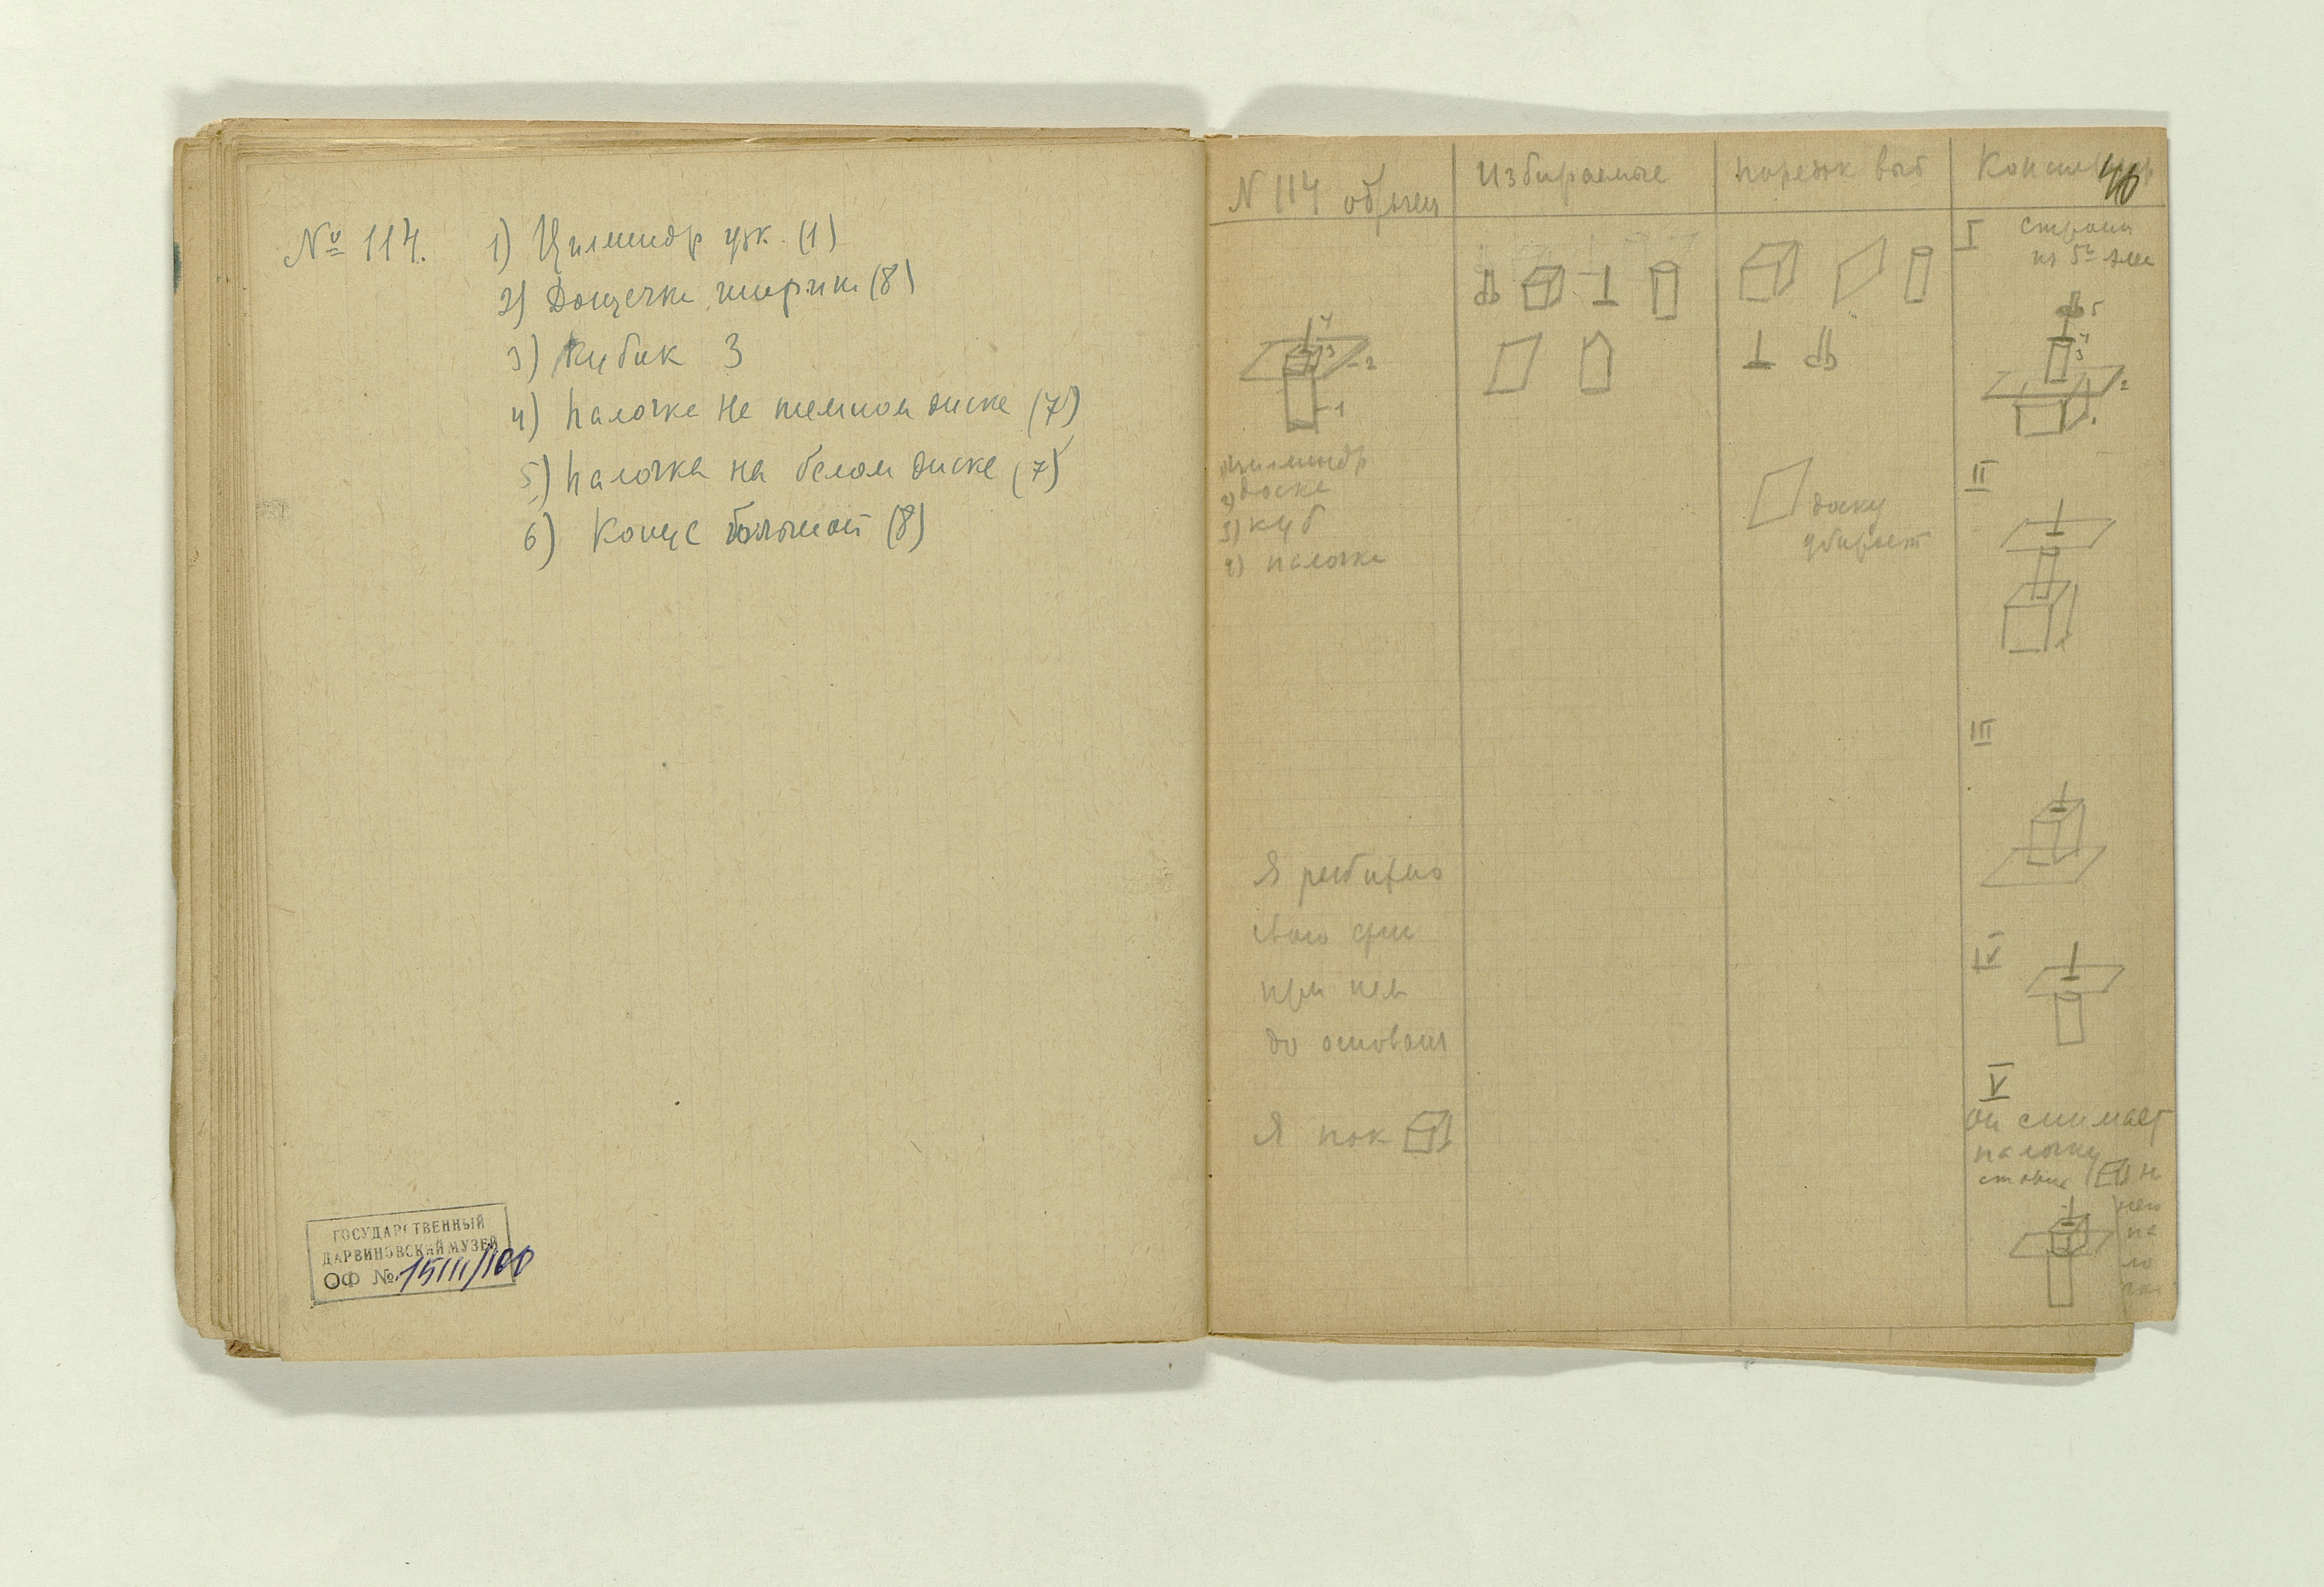 № 114.
1) Цилиндр узк. (1)
2) Дощечка широк (8)
3) Кубик 3
4) Палочка на темном диске (7)
5) Палочка на белом диске (7)
6) Конус большой (8)
ГОСУДАРСТВЕННЫЙ
ДАРВИНОВСКИЙ МУЗЕЙ
ОФ № 15111/100
N 114 образец
4
3
2
1
1) цилиндр
2) доска
3) куб
4) палочка
Я разбираю
свою
при нем
до основан
Я пок
Избираемые
порядок выб
доску
убирает
40
I строит
из 5ти эле
5
4
3
2
1
II
III
IV
V
он снимает
палочку
ставит на
него
па
ло
чку